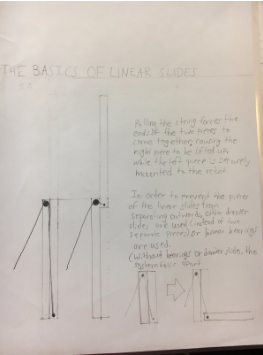 THE BASICS OF LINEAR SLIDES
Pulling the string forces the
ends of the two pieces to
come together, causing the
right piece to be lifted up
while the left piece is securely
mounted to the robot.
In order to prevent the pieces
of the linear slides from
separating outwards, either drawer
slides are used (instead of two
separate pieces) or linear bearings
are used.
(Without bearings or drawer slides, this